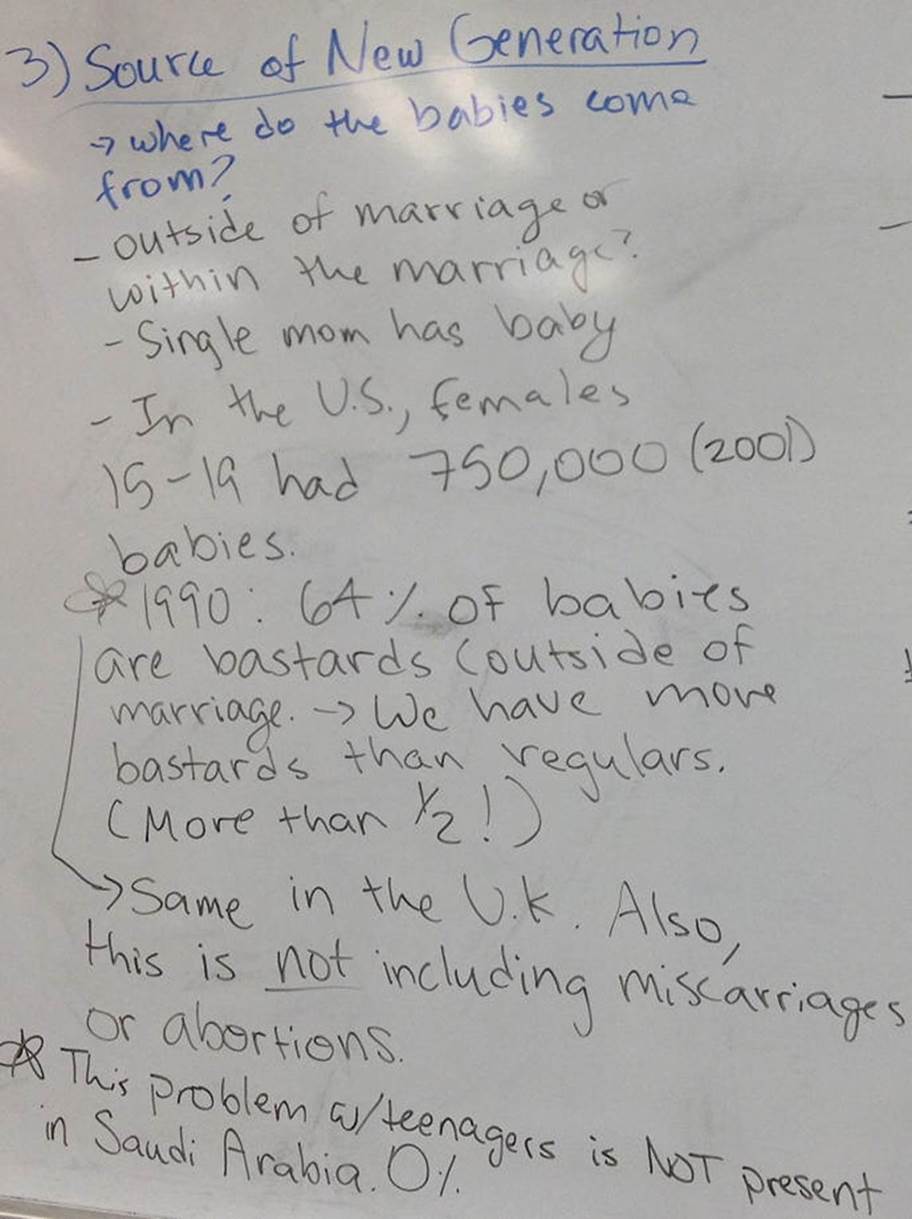 3) Source of New Generation
→ where do the babies come
from?
- outside of marriage or
within the marriage?
- Single mom has baby
- In the U.S., females
15-19 had 750,000 (2001)
babies.
* 1990: 64% of babies
are bastards (outside of
marriage. → We have more
bastards than regulars.
(More than 1/2!)
→ Same in the U.K. Also,
this is not including miscarriages
or abortions.
* This problem w/teenagers is NOT present
in Saudi Arabia. 0%.